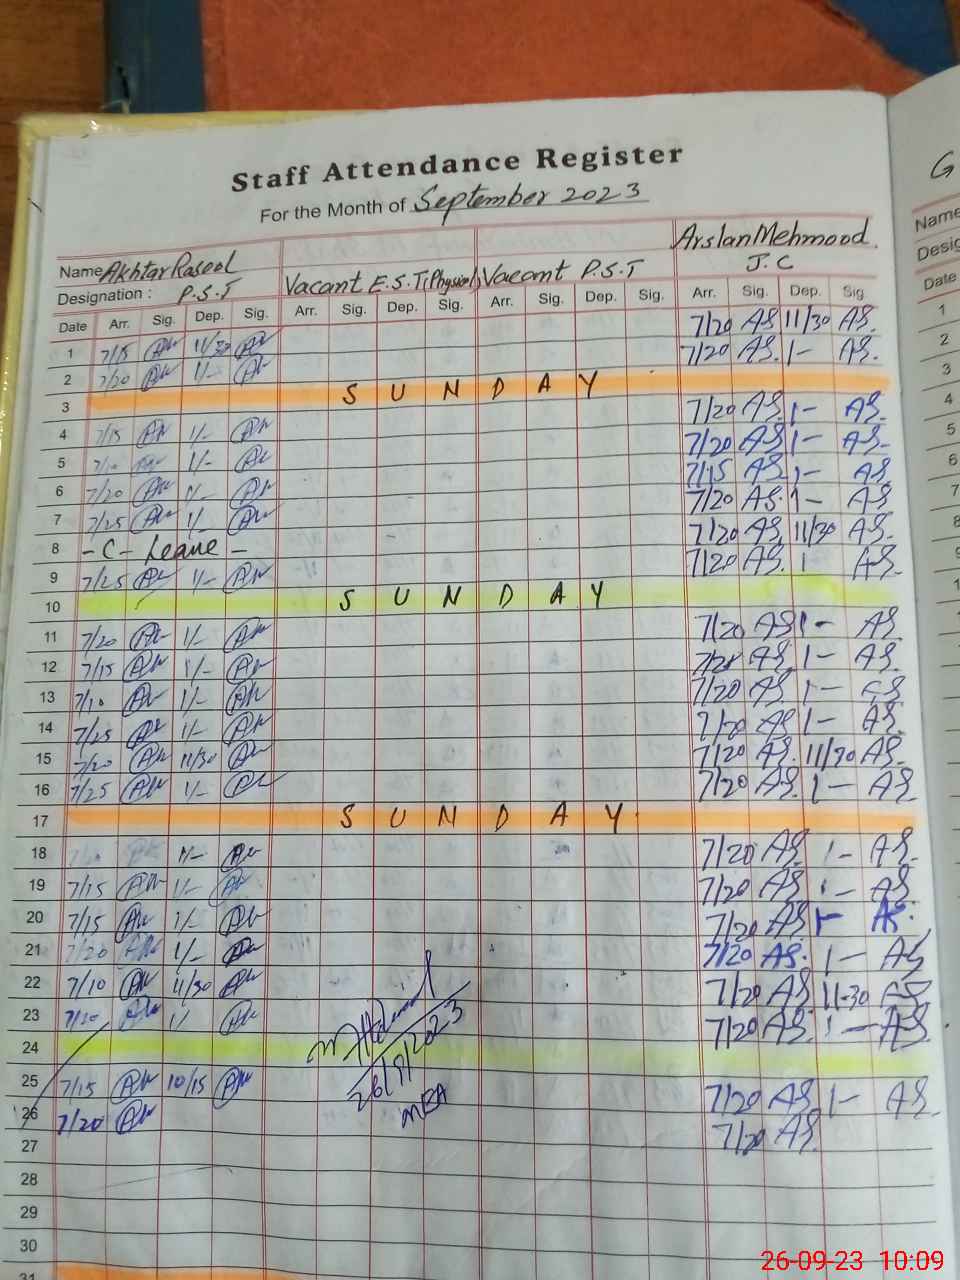 Staff Attendance Register
For the Month of September 2023
Name Akhtar Rasool Arslan Mehmood
Designation : P.S.T Vacant E.S.T(Physical) Vacant P.S.T J.C
Date Arr. Sig. Dep. Sig. Arr. Sig. Dep. Sig. Arr. Sig. Dep. Sig. Arr. Sig. Dep. Sig.
1 7/15 11/30 7/20 AS 11/30 AS.
2 7/20 1/- 7/20 AS. 1- AS.
3 S U N D A Y
4 7/15 1/- 7/20 AS. 1- AS.
5 1/- 7/20 AS. 1- AS.
6 7/20 1/- 7/15 AS. 1- AS.
7 7/25 1/- 7/20 AS. 1- AS
8 - C - Leave - 7/20 AS. 11/30 AS.
9 7/25 1/- 7/20 AS. 1- AS.
10 S U N D A Y
11 7/20 1/- 7/20 AS 1- AS
12 7/15 1/- AS. 1- AS.
13 7/10 1/- 7/20 AS. 1- AS
14 7/25 1/- 7/20 AS. 1- AS.
15 7/20 11/30 7/20 AS. 11/30 AS.
16 7/25 1/- 7/20 AS. 1- AS.
17 S U N D A Y
18 1/- 7/20 AS. 1- AS.
19 7/15 1/- 7/20 AS. 1- AS.
20 7/15 1/- 7/20 AS 1- AS.
21 7/20 1/- 7/20 AS. 1- AS
22 7/10 11/30 7/20 AS 11-30 AS
23 7/20 1/ 7/20 AS. 1- AS.
24
25 7/15 10/15 7/20 AS 1- AS.
26 7/20 7/20 AS.
26/9/2023
MEA
27
28
29
30
31
G
Name
Desig
Date
1
2
3
4
5
6
7
8
9
1
26-09-23 10:09